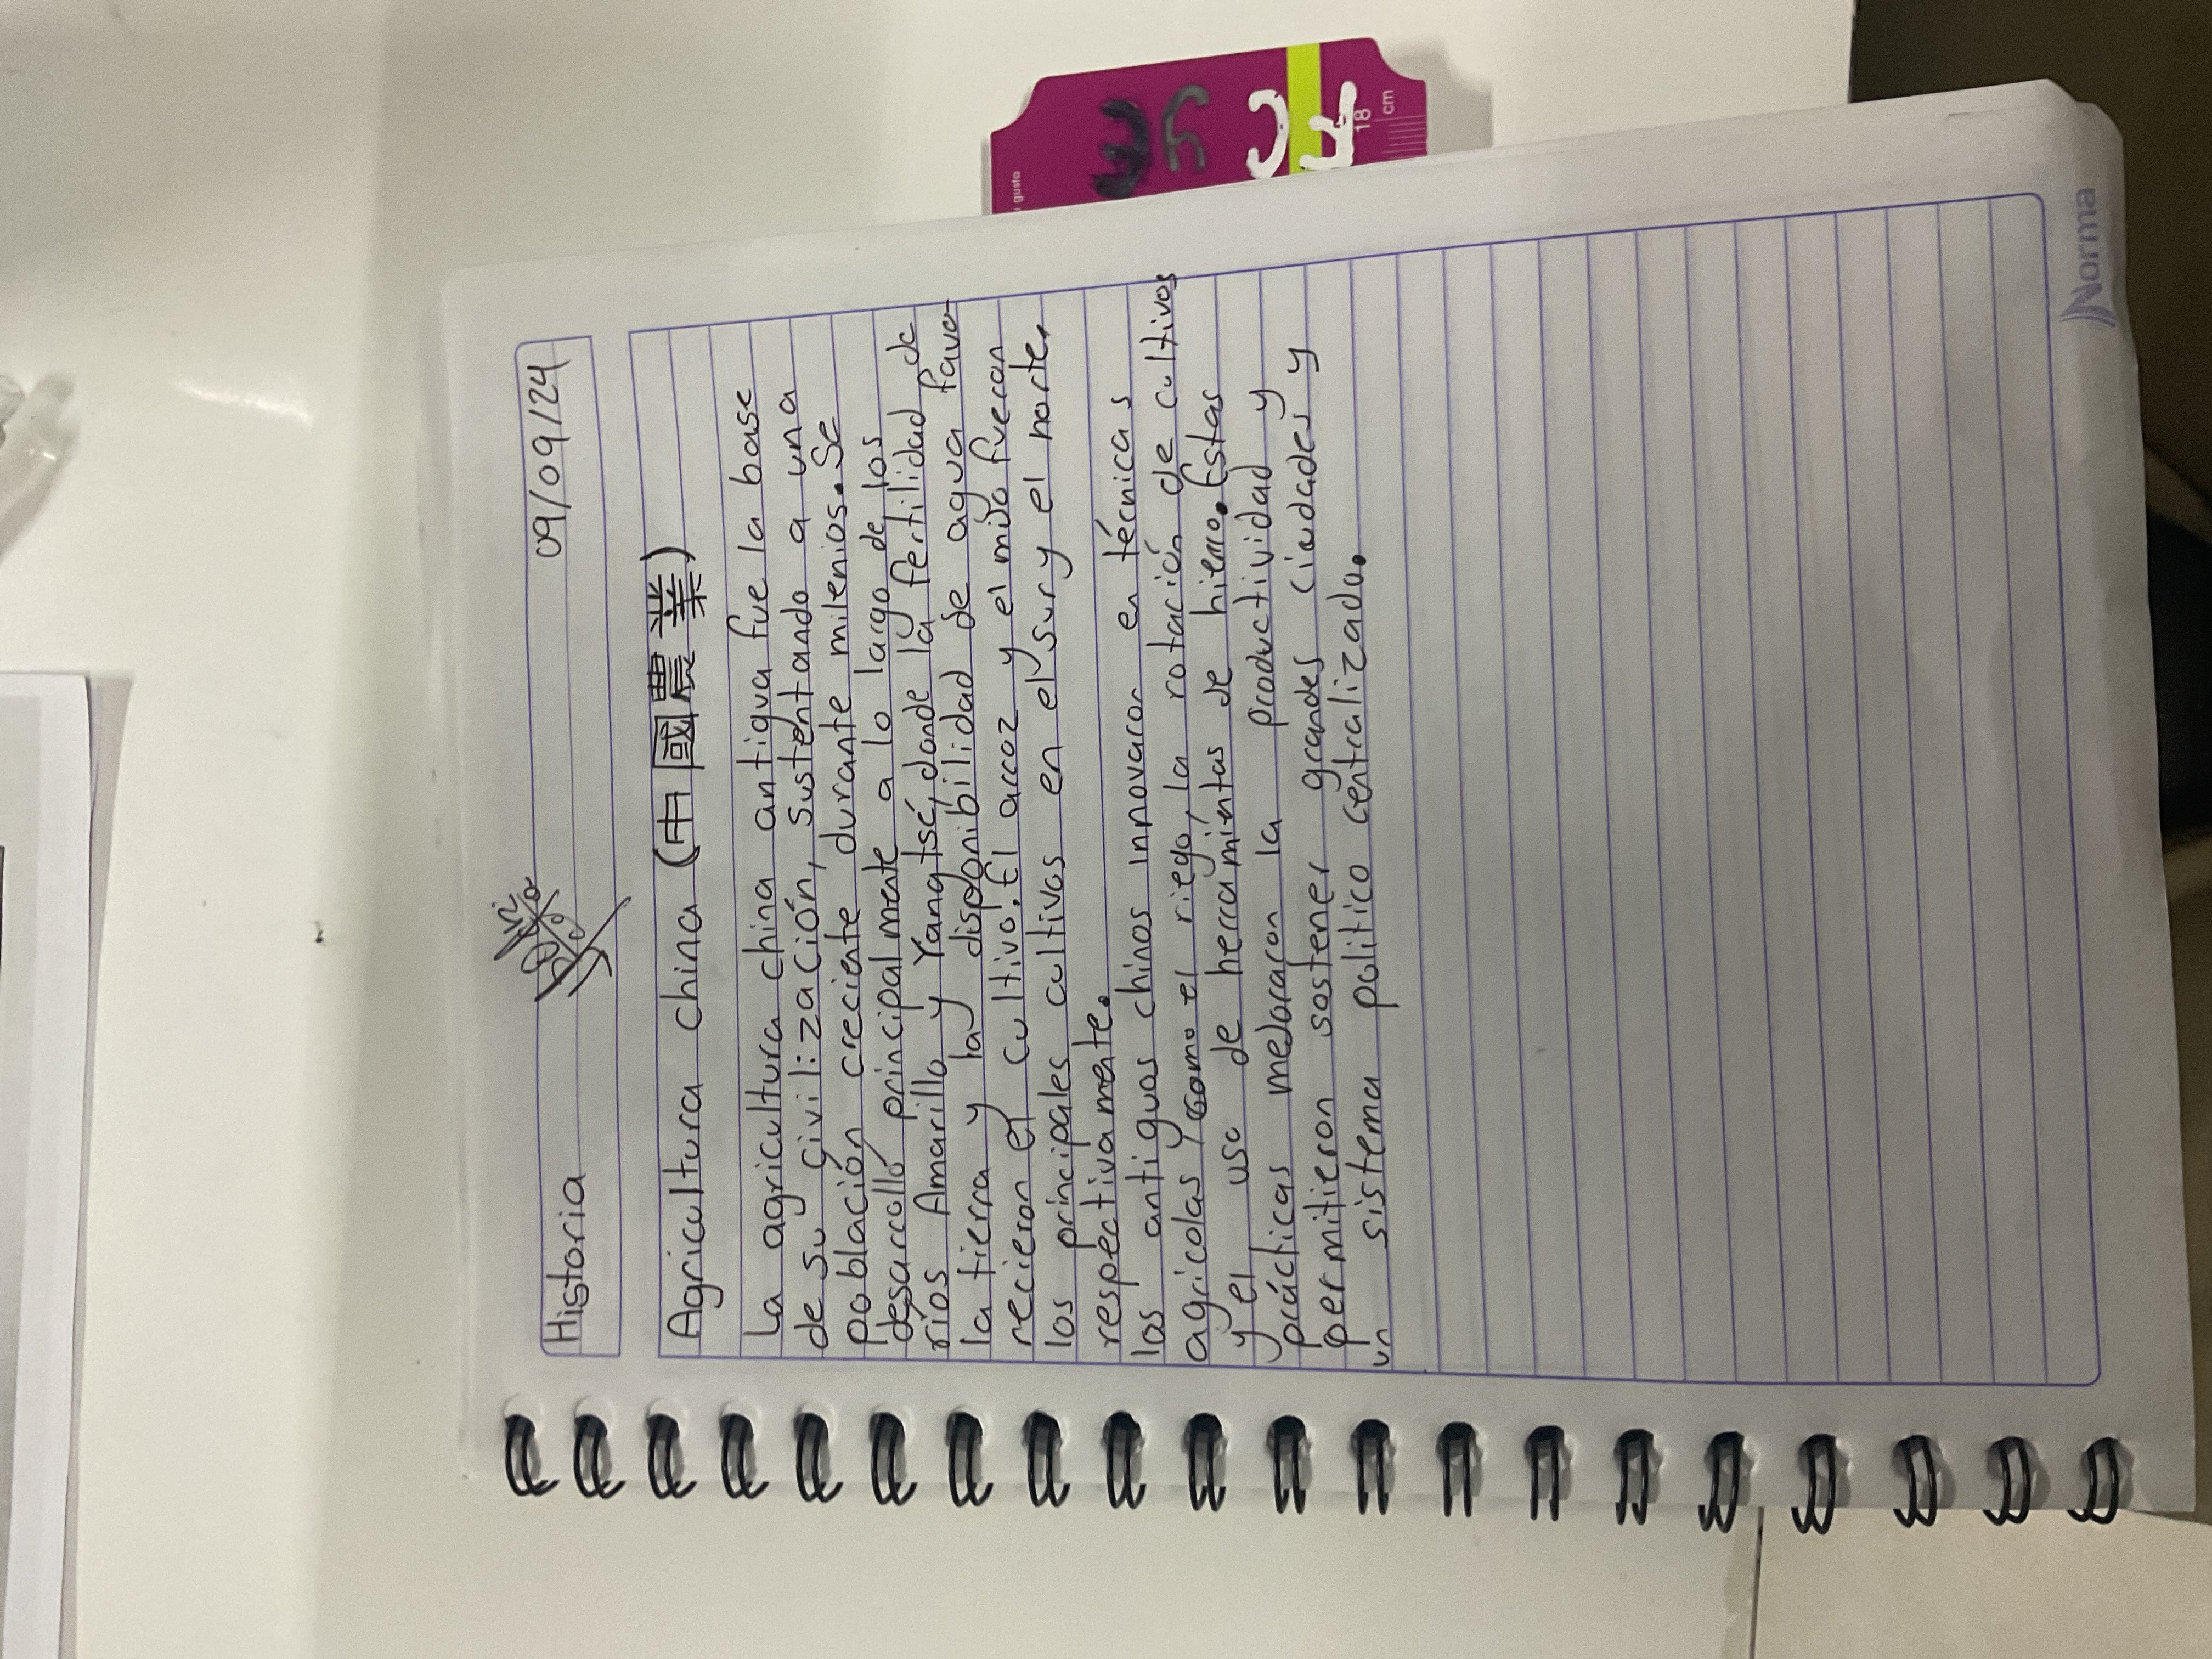 Historia
09/09/24
Agricultura china (中國農業)
La agricultura china antigua fue la base
de su civilización, sustentando a una
población creciente durante milenios. Se
desarrolló principalmente a lo largo de los
ríos Amarillo y Yangtsé, donde la fertilidad de
la tierra y la disponibilidad de agua favo
recieron el cultivo. El arroz y el mijo fueron
los principales cultivos en el sur y el norte,
respectivamente.
los antiguos chinos innovaron en técnicas
agrícolas, como el riego, la rotación de cultivos
y el uso de herramientas de hierro. Estas
prácticas mejoraron la productividad y
permitieron sostener grandes ciudades y
un sistema politico centralizado.
Norma
gusto
18
cm